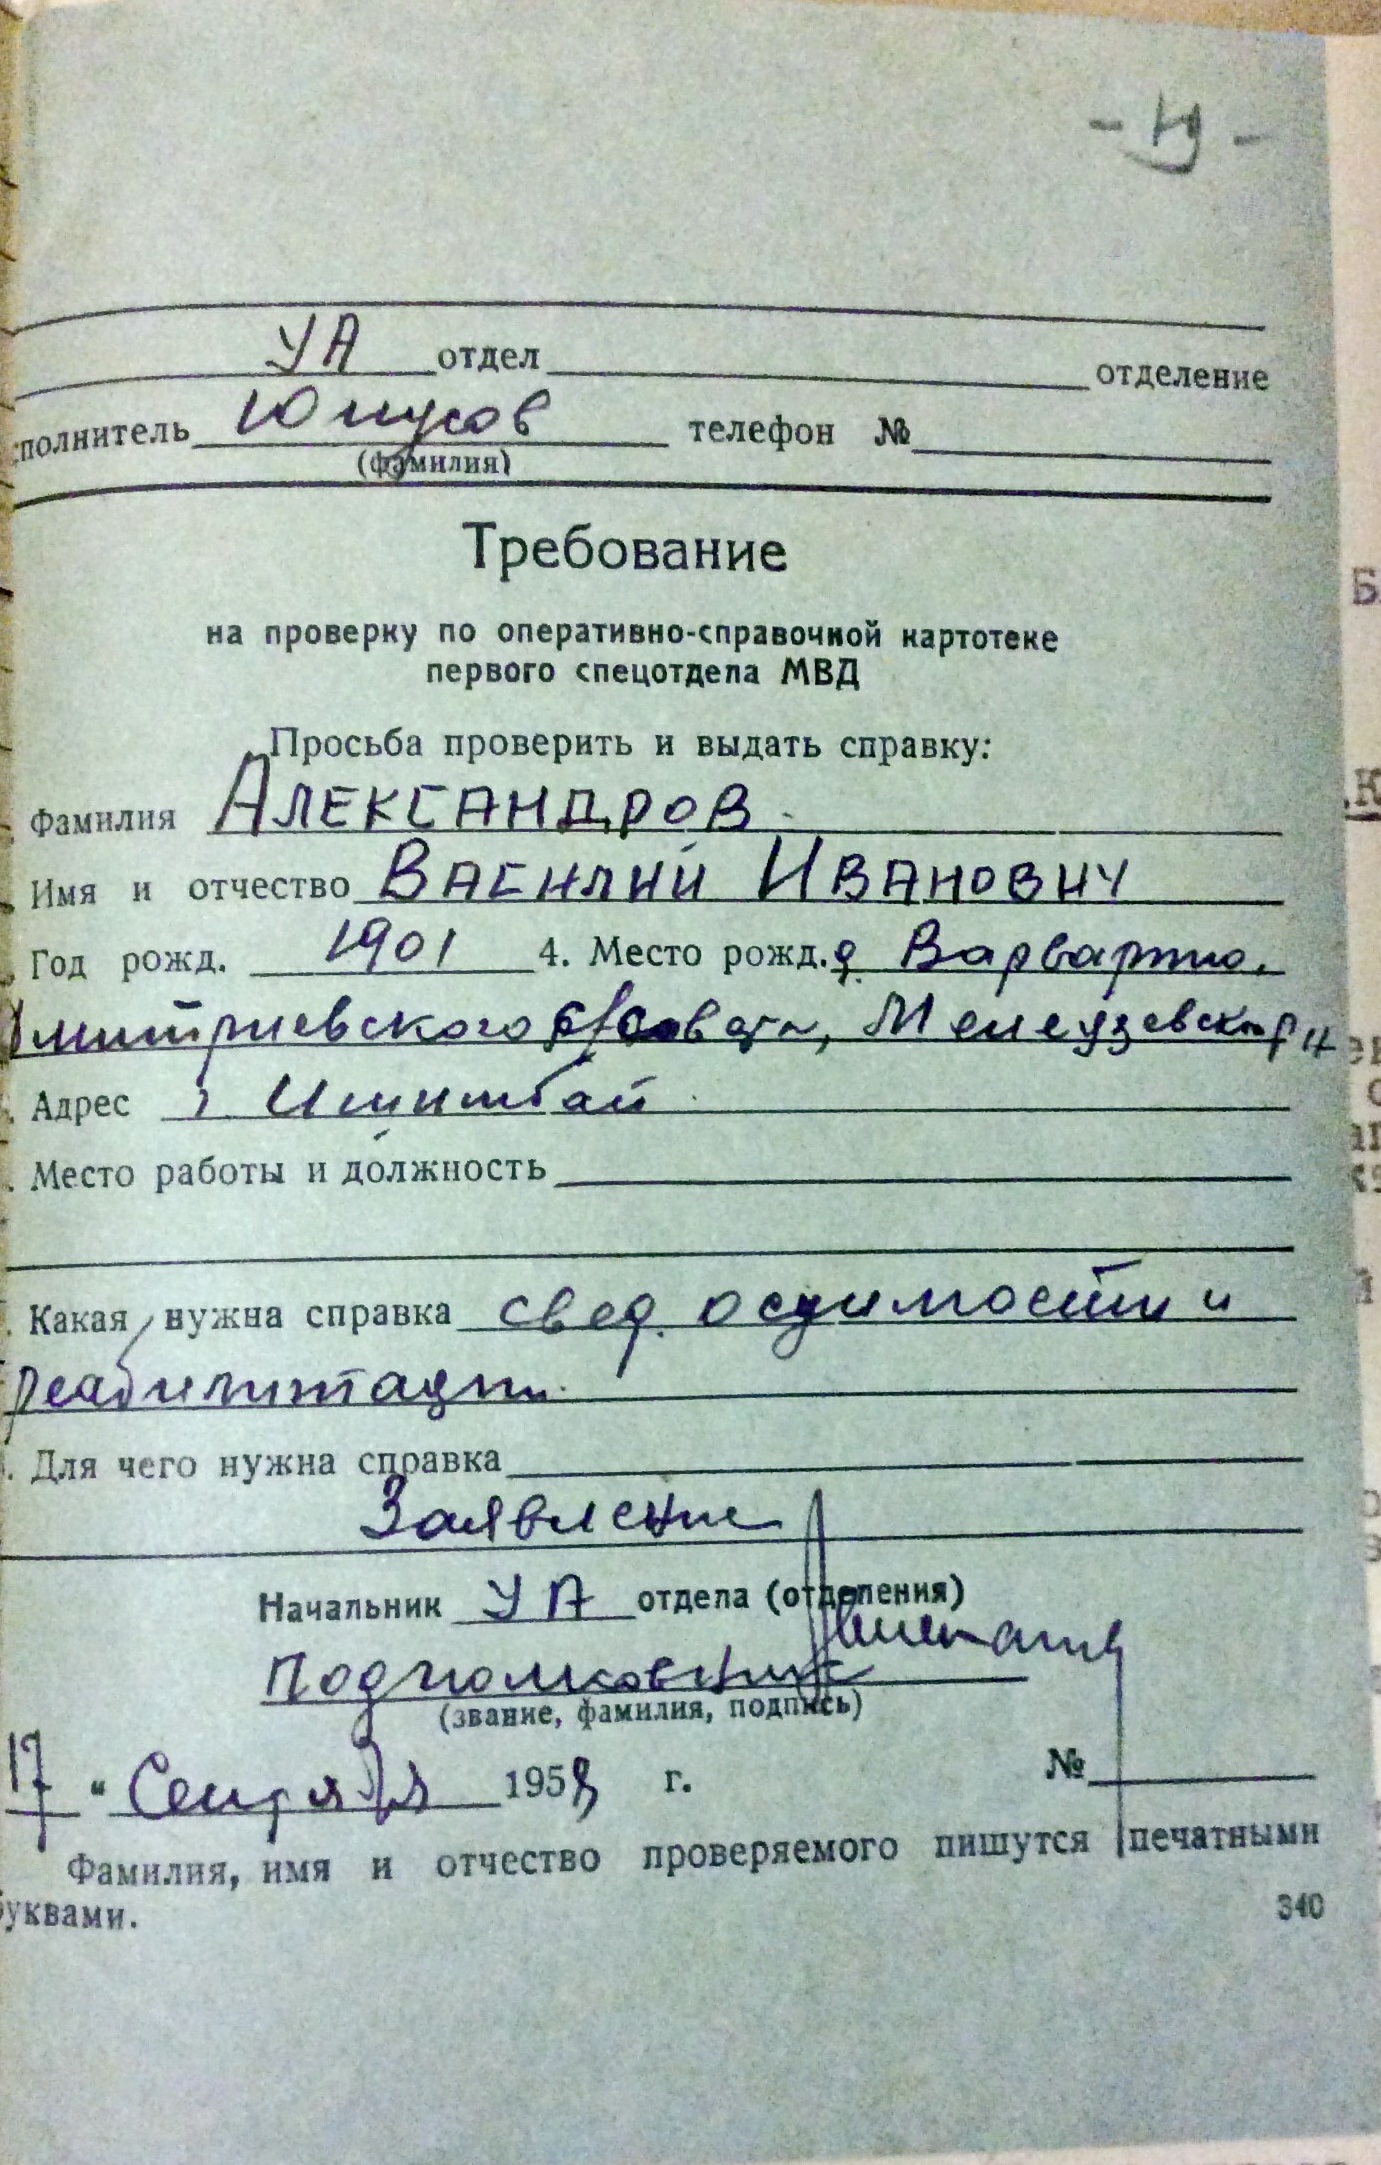 УА отдел отделение
сполнитель Юнусов телефон №
(фамилия)
Требование
на проверку по оперативно-справочной картотеке
первого спецотдела МВД
Просьба проверить и выдать справку:
Фамилия АЛЕКСАНДРОВ
Имя и отчество ВАСИЛИЙ ИВАНОВИЧ
Год рожд. 1901 4. Место рожд. д. Варварино,
Дмитриевского с/совета, Мелеузовского р-н
Адрес г. Ишимбай
Место работы и должность
Какая нужна справка свед. осудимости и
реабилитации
Для чего нужна справка
Заявление
Начальник УА отдела (отделения)
подполковник
(звание, фамилия, подпись)
17 " Сентября 1958 г. №
Фамилия, имя и отчество проверяемого пишутся печатными
буквами.
340